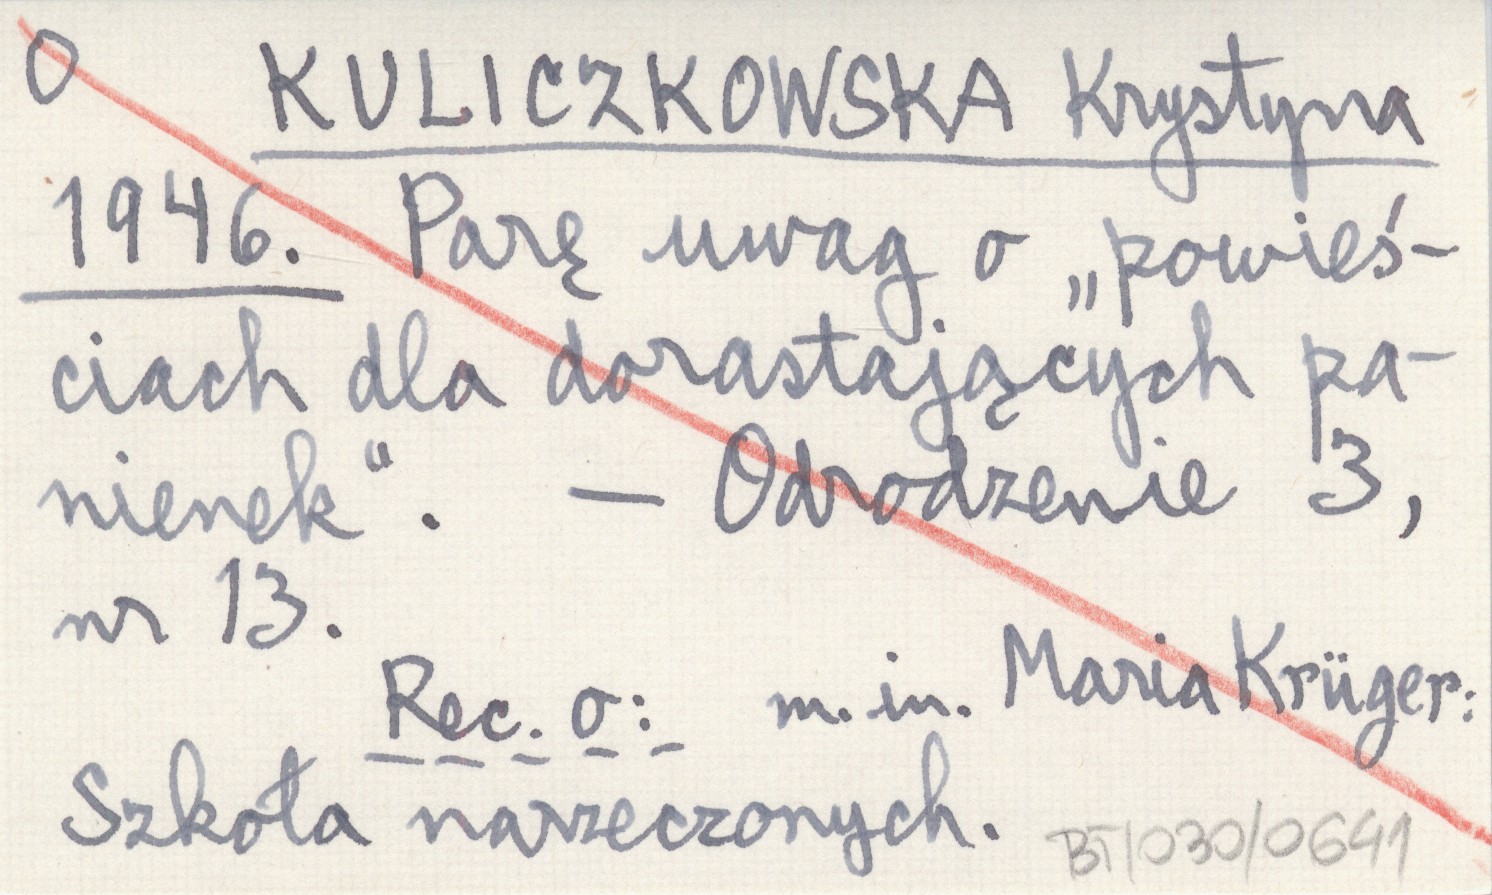 O KULICZKOWSKA Krystyna
1946. Parę uwag o „powieś-
ciach dla dorastających pa-
nienek“. — Odrodzenie 3,
nr 13.
Rec. o: m.in. Maria Krüger:
Szkoła narzeczonych.
BT/030/0641